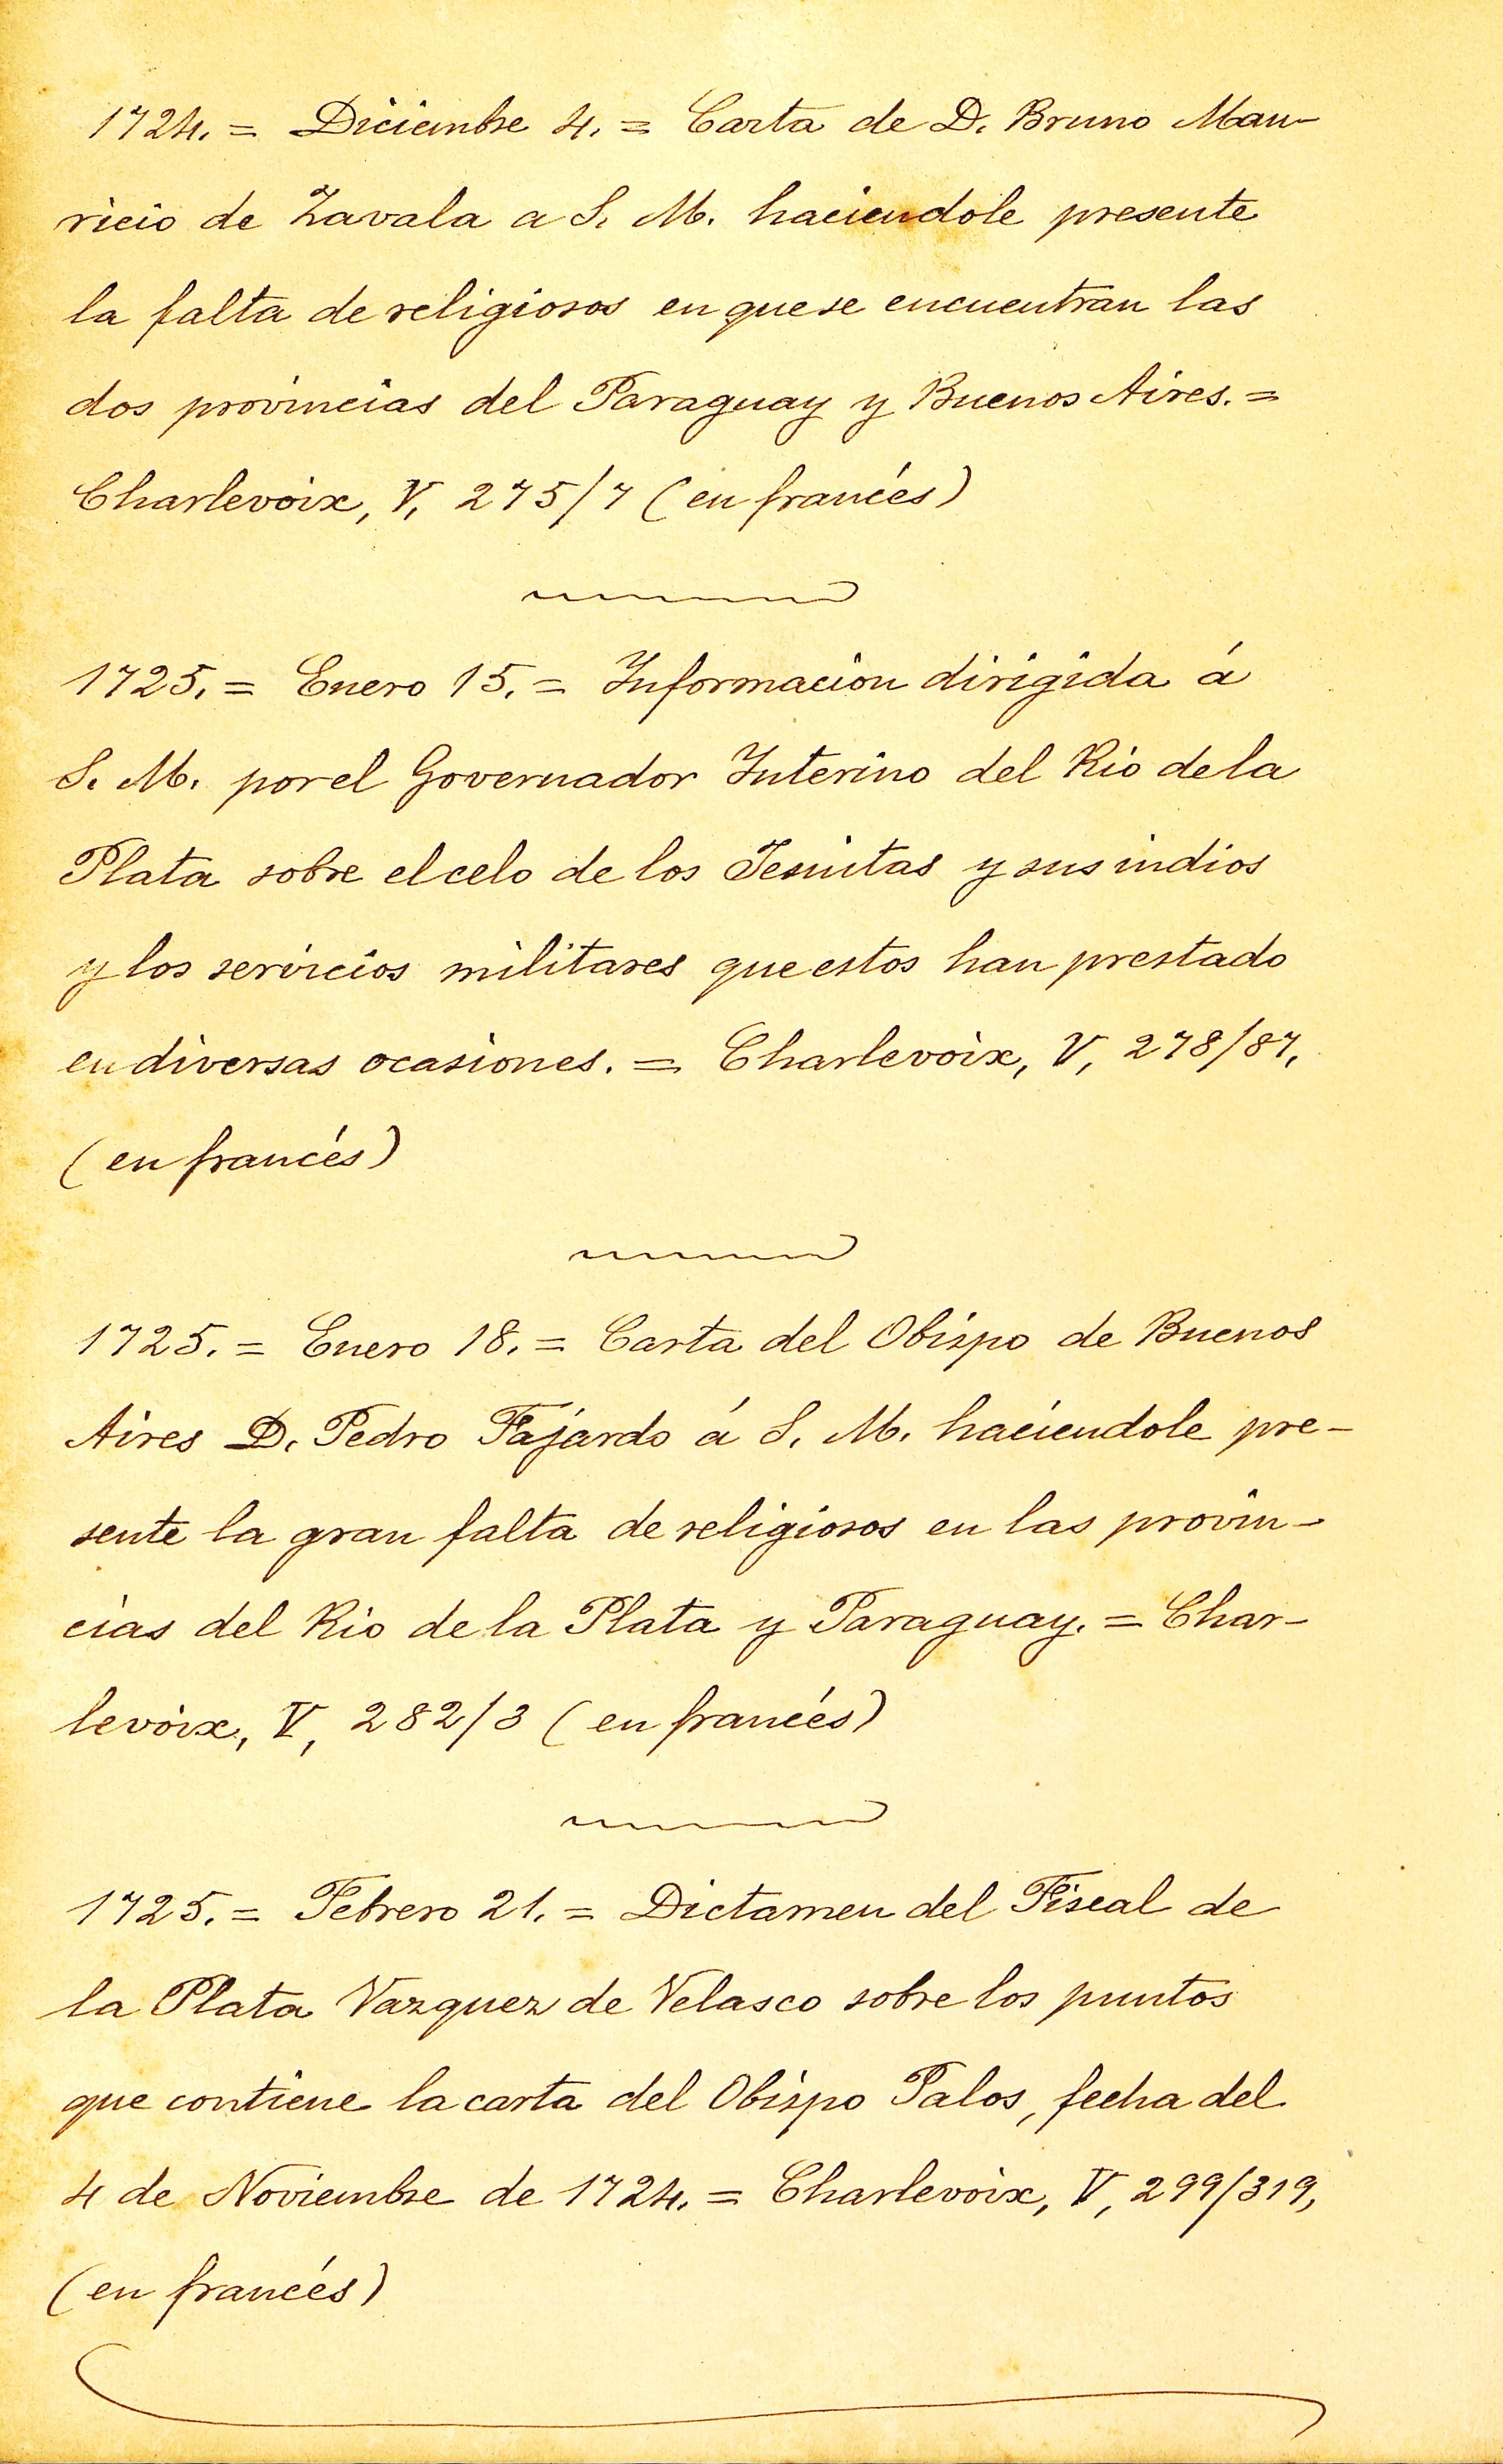 1724. = Diciembre 4. = Carta de D. Bruno Mau-
ricio de Zavala a S. M. haciendole presente
la falta de religiosos en que se encuentran las
dos provincias del Paraguay y Buenos Aires. =
Charlevoix, V, 275/7 (en francés)
1725. = Enero 15. = Informacion dirigida á
S. M. por el Governador Interino del Rio de la
Plata sobre el celo de los Jesuitas y sus indios
y los servicios militares que estos han prestado
en diversas ocasiones. = Charlevoix, V, 278/87,
(en francés)
1725. = Enero 18. = Carta del Obispo de Buenos
Aires D. Pedro Fajardo á S. M. haciendole pre-
sente la gran falta de religiosos en las provin-
cias del Rio de la Plata y Paraguay. = Char-
levoix, V, 282/3 (en francés)
1725. = Febrero 21. = Dictamen del Fiscal de
la Plata Vazquez de Velasco sobre los puntos
que contiene la carta del Obispo Palos, fecha del
4 de Noviembre de 1724. = Charlevoix, V, 299/319,
(en francés)